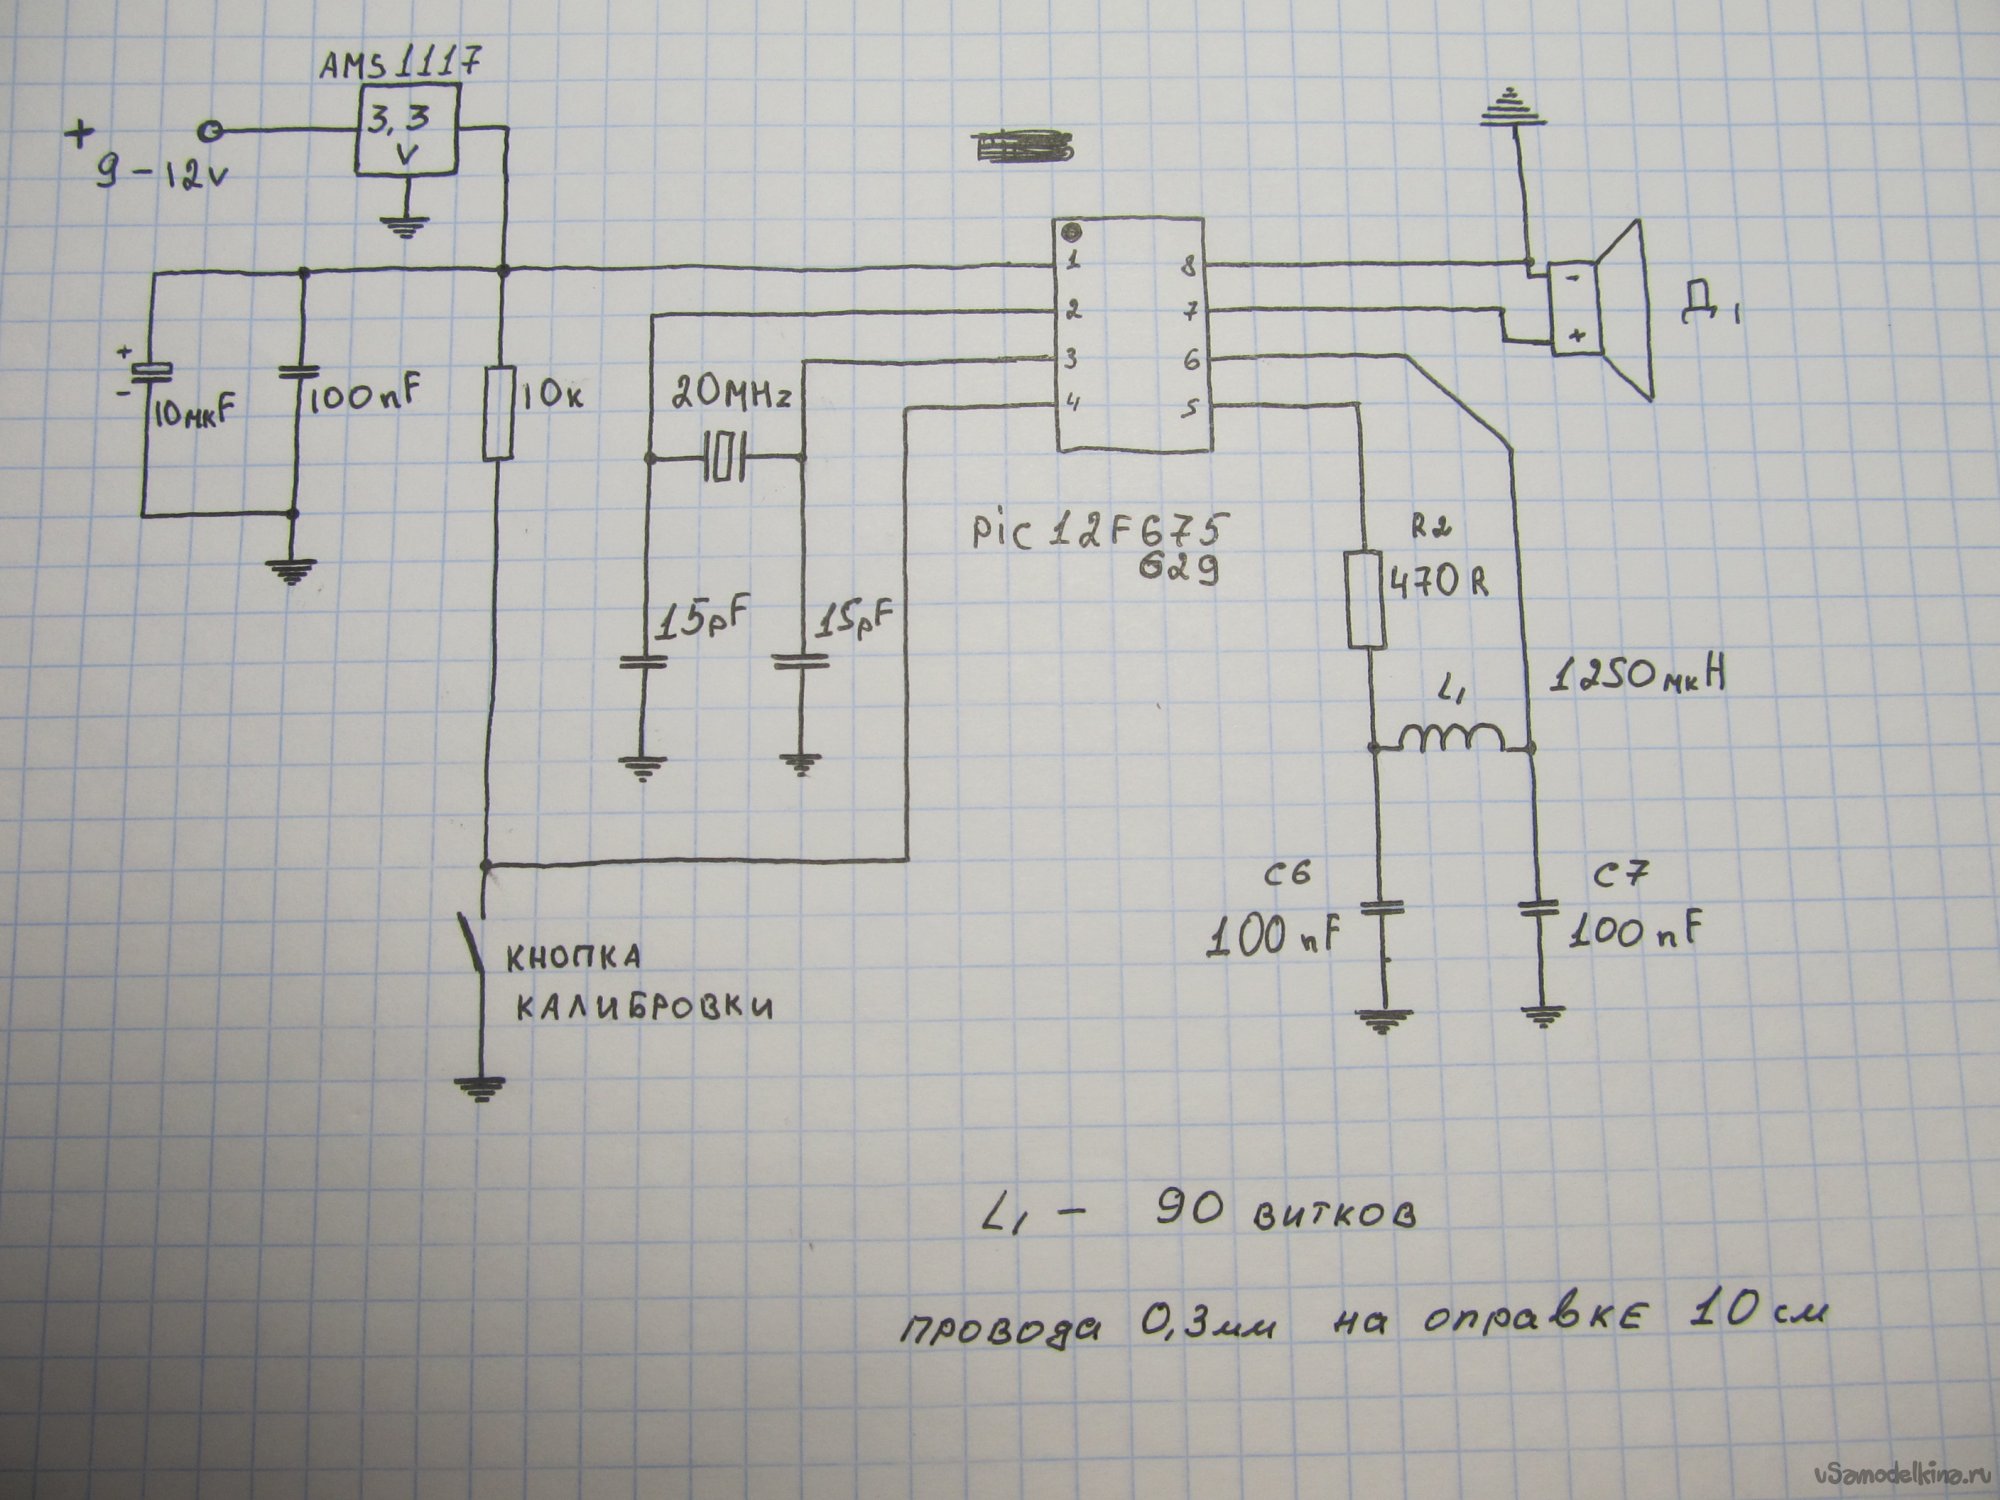 AMS1117
3,3
V
+
9-12v
+
-
10мкF
100nF
10к
20MHz
15pF
15pF
1
2
3
4
8
7
6
5
Pic 12F675
629
-
+
Д1
R2
470R
L1
1250мкН
C6
100nF
C7
100nF
КНОПКА
КАЛИБРОВКИ
L1 - 90 витков
провода 0,3мм на оправке 10см
vSamodelkina.ru